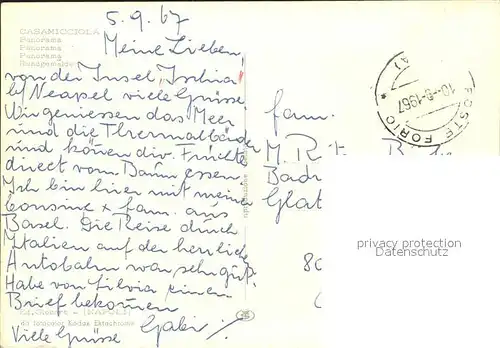 5.9.67
CASAMICCIOLA
Panorama
Panorama
Panorama
Meine Lieben,
von der Insel, Ischia
b/ Neapel viele Grüsse.
Wir geniessen das Meer
und die Thermalbäder
und können div. Früchte
direkt vom Baum essen.
Ich bin hier mit meiner
Cousine + fam. aus
Basel. Die Reise durch
Italien auf der herrlichen
Autobahn war sehr gut.
Habe von Silvia einen
Brief bekommen
(NAPOLI)
Kodak Ektachrome
Viele Grüsse Gabi
fam.
M.
Glat
POSTE FORIO
10-9-1967
privacy protection
Datenschutz